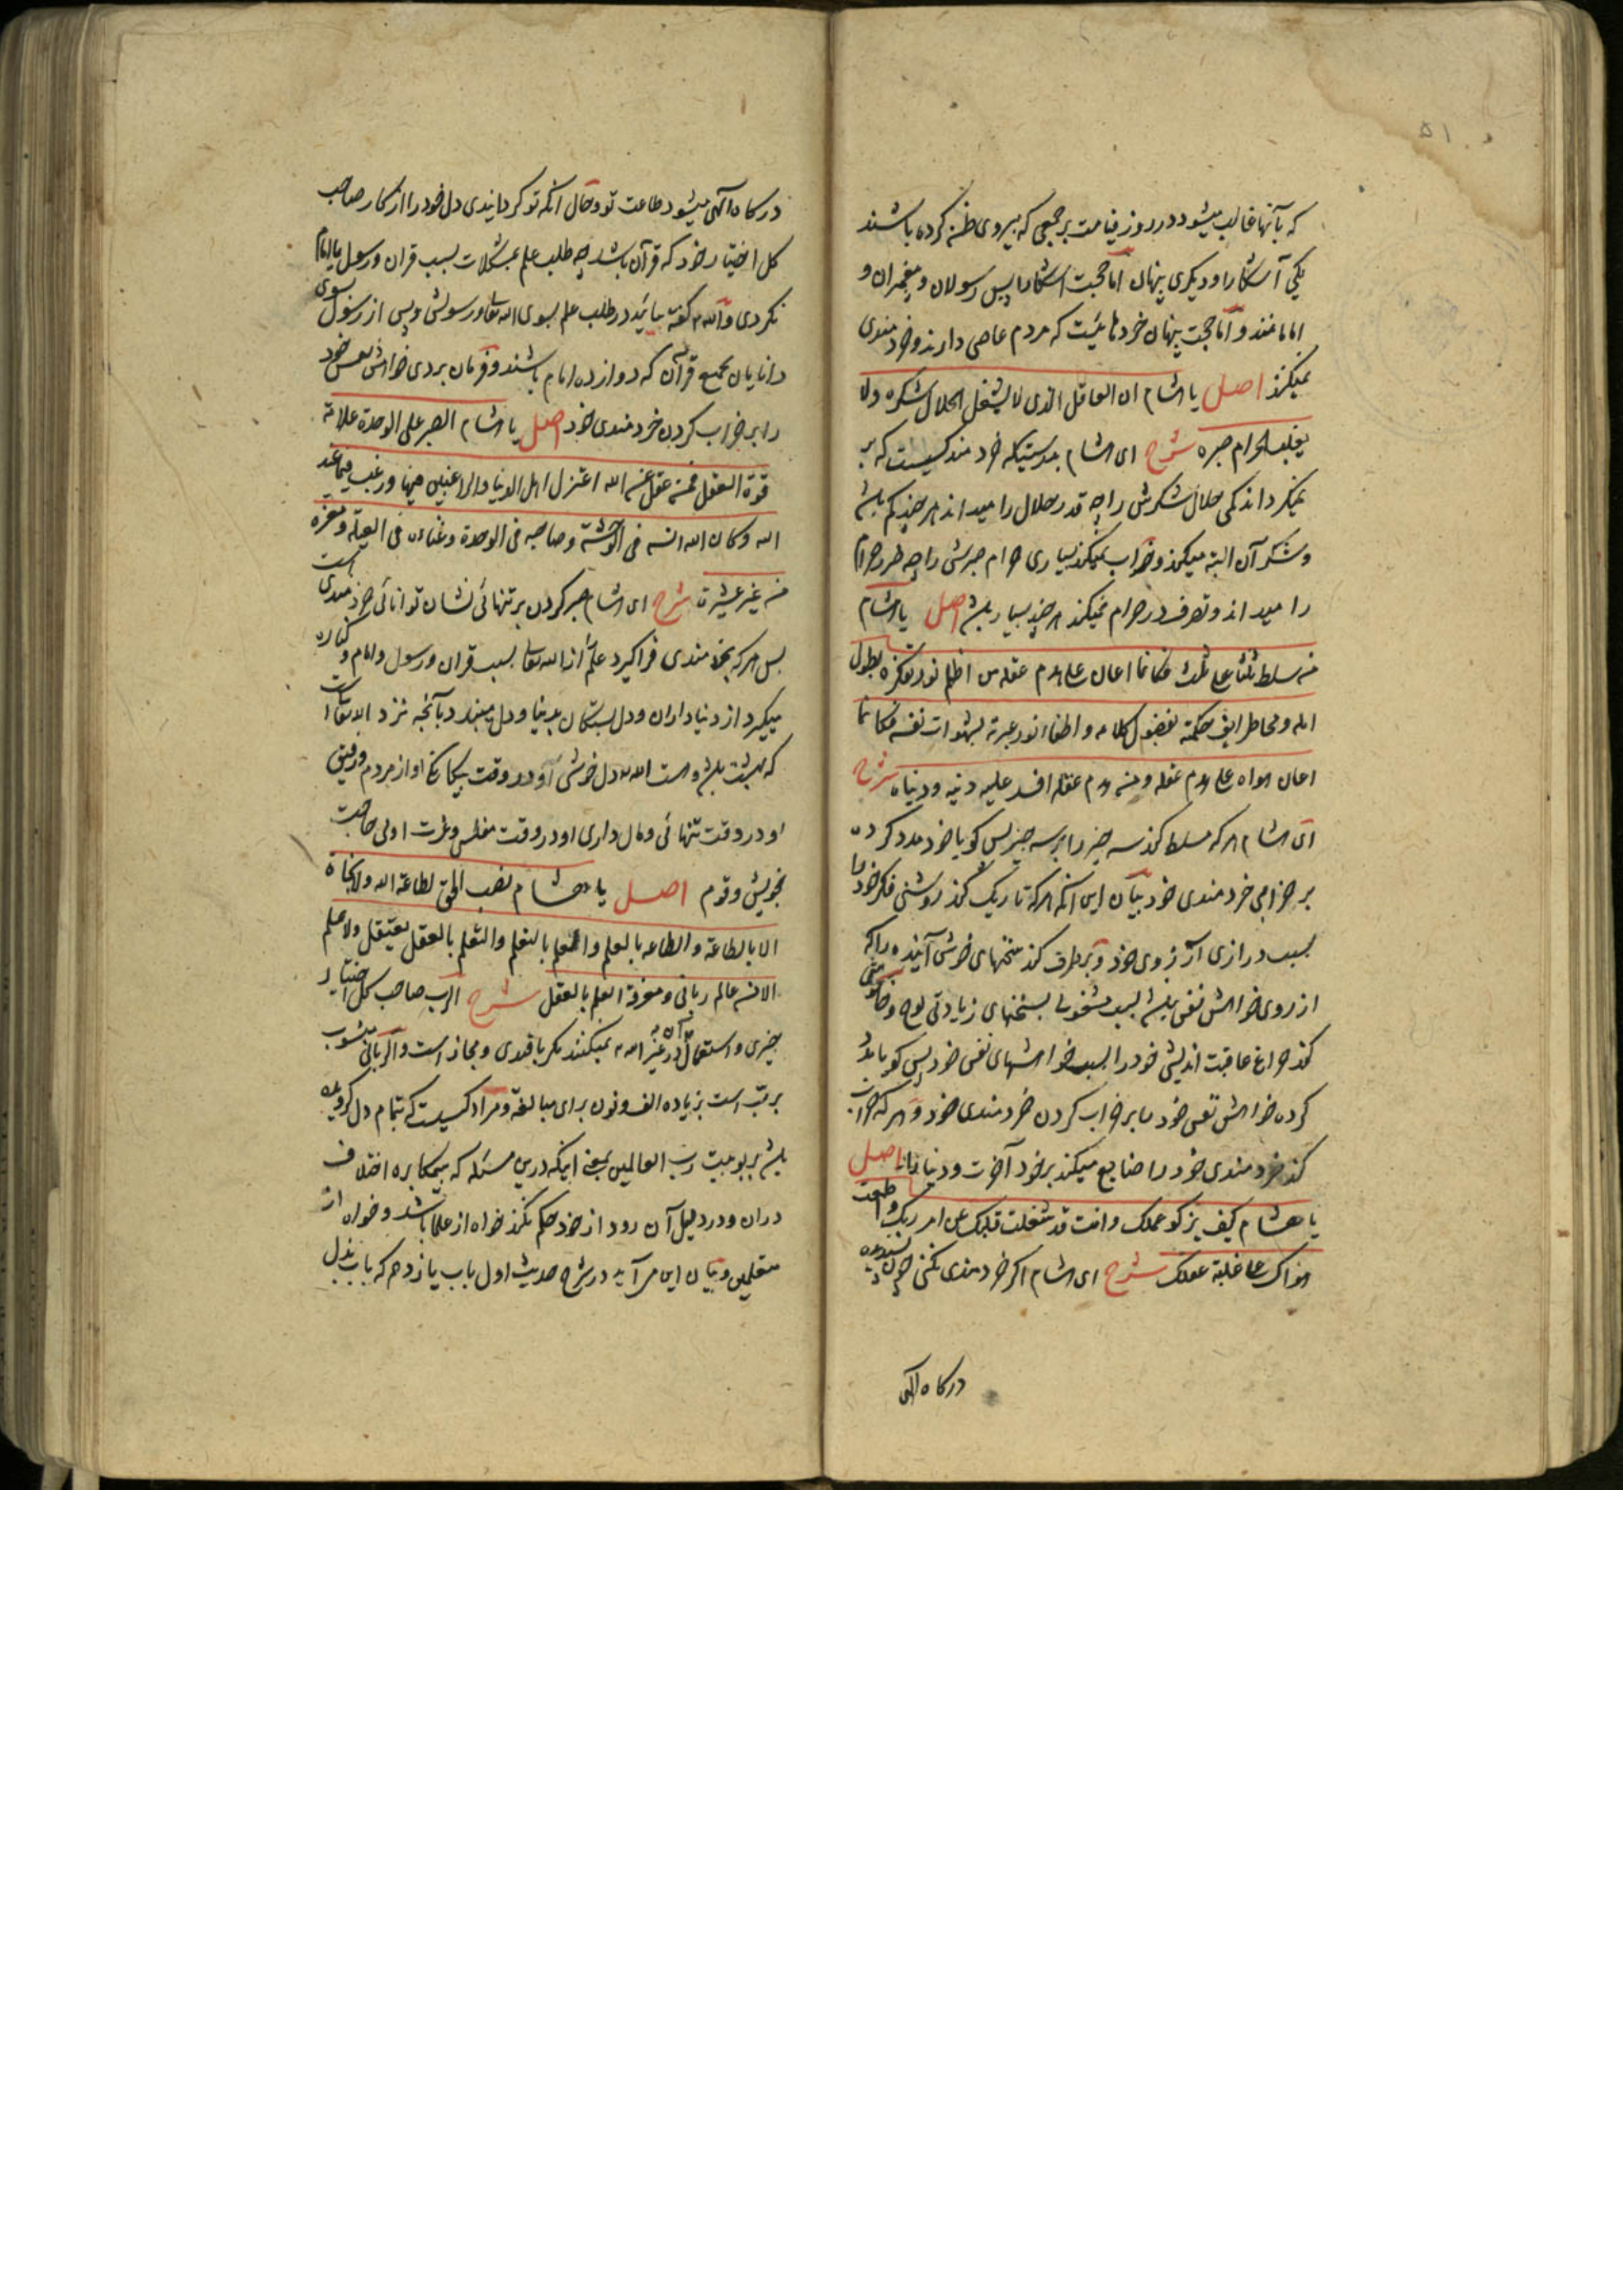 ۵۱
که بآنها غالب میشود در روز قیامت بر جمعی که پیروی ظن کرده باشند
یکی آشکارا و دیگری پنهان اما حجت آشکارا پس رسولان و پیغمبران و
امامانند و اما حجت پنهان خردهائیست که مردم عاصی دارند و خردمندی
نمیکنند اصل یا هشام ان العاقل الذی لا یشغل الحلال شکره ولا
یغلب الحرام صبره شرح ای هشام بدرستیکه خردمند کسیست که بر
نمیگرداند کمی حلال شکرش را چه قدر حلال را میداند هر چند کم باشد
و شکر آن البته میکند و خراب نمیکند بسیاری حرام صبرش را چه طرد حرام
را میداند و تصرف در حرام نمیکند هر چند بسیار باشد اصل یا هشام
من سلط ثلثا علی ثلث فکانما اعان علی هدم عقله من اظلم نور تفکره بطول
امله و محا طرایف حکمته بفضول کلامه و اطفا نور عبرته بشهوات نفسه فکانما
اعان هواه علی هدم عقله و من هدم عقله افسد علیه دینه و دنیاه شرح
ای هشام هر که مسلط کند سه چیز را بر سه چیز پس گویا خود مدد کرده
بر خرابی خردمندی خود بیان این آنکه هر که تاریک کند روشنی فکر خود را
بسبب درازی آرزوی خود و برطرف کند سخنهای خوش آینده را که
از روی خواهش نفس باشد بسبب مشغولی بسخنهای زیادتی لوح و خاموش
کند چراغ عاقبت اندیشی خود را بسبب خواهشهای نفس خود پس گویا مدد
کرده خواهش نفس خود را بر خراب کردن خردمندی خود و هر که خراب
کند خردمندی خود را ضایع میکند بر خود آخرت و دنیا را اصل
یا هشام کیف یزکو عملک وانت قد شغلت قلبک عن امر ربک و اطعت
هواک علی غلبة عقلک شرح ای هشام اگر خردمندی نکنی چون پسندیده
درگاه الهی
درگاه الهی میشود طاعت تو و حال آنکه تو گردانیدی دل خود را از کار صاحب
کل اختیار خود که قرآن باشد چه طلب علم بمشکلات بسبب قران و رسول یا امام
نکردی و الله گفته بیائید در طلب علم بسوی الله تعالی و رسولش و پس از رسول سوی
دانایان بجمیع قرآن که دوازده امام باشند و فرمان بردی خواهش نفس خود
را بر خراب کردن خردمندی خود اصل یا هشام الصبر علی الوحدة علامة
قوة العقل فمن عقل عن الله اعتزل اهل الدنیا والراغبین فیها و رغب فیما عند
الله وکان الله انسه فی الوحشة وصاحبه فی الوحدة وغناه فی العیلة ومعزه
من غیر عشیرة شرح ای هشام صبر کردن بر تنهائی نشان توانائی خردمندی است
پس هر که بخردمندی فرا گیرد علم از الله تعالی بسبب قران و رسول و امام کناره
میگیرد از دنیاداران و دل بستگان بدنیا و دل میبندد بآنچه نزد الله تعالی است
که بهشت باشد و هست الله دل خوشی او در وقت بیگانگی او از مردم و رفیق
او در وقت تنهائی و مال داری او در وقت مفلسی و عزت او بی حاجت
بخویش و قوم اصل یا هشام نصب الحق لطاعة الله ولا نجاة
الا بالطاعة والطاعة بالعلم والعلم بالتعلم والتعلم بالعقل یعتقل ولا علم
الا من عالم ربانی ومعرفة العلم بالعقل شرح الرب صاحب کل اختیار
چیزی و استعمال آن در غیر الله نمیکنند مگر باقیدی و مجاز است و الربانی منسوب
برب است بزیاده الف و نون برای مبالغه و مراد کسیست که بتمام دل گرویده
باشد بربوبیت رب العالمین بمعنی اینکه در این مسئله که بیمکابره اختلاف
در آن و در دلیل آن رود از خود حکم نکند خواه از علما باشد و خواه از
متعلمین و بیان این می آید در شرح حدیث اول باب یازدهم که باب بذل